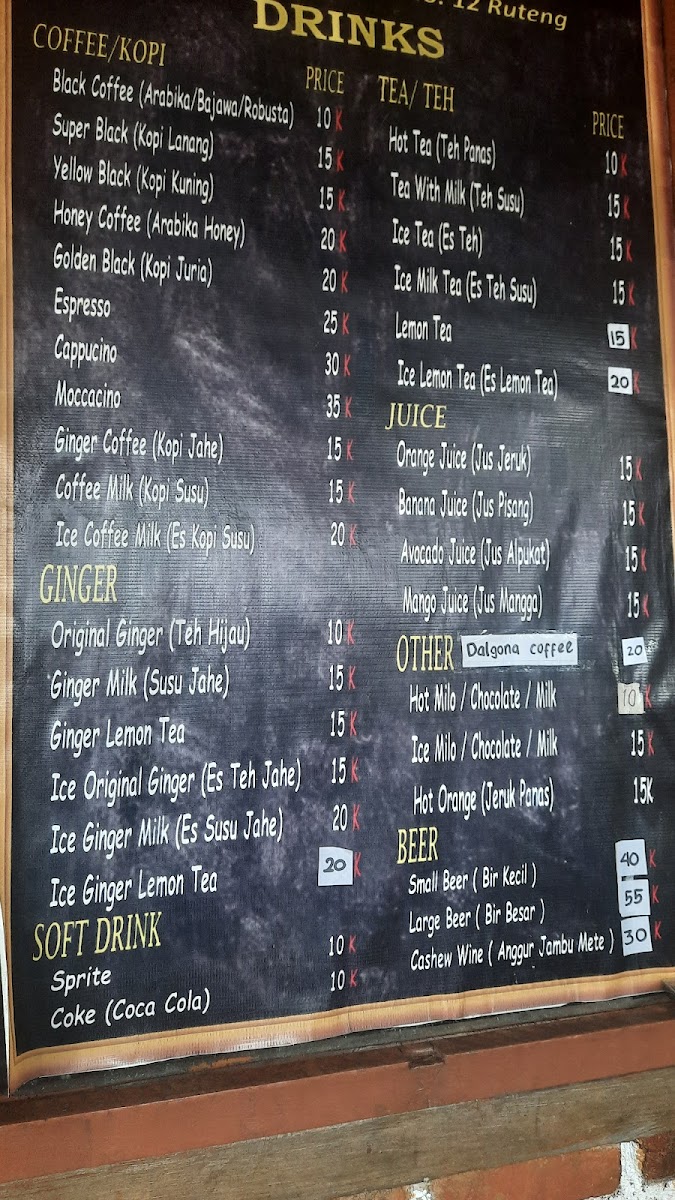 12 Ruteng
DRINKS
COFFEE/KOPI
PRICE
Black Coffee (Arabika/Bajawa/Robusta) 10 K
Super Black (Kopi Lanang) 15 K
Yellow Black (Kopi Kuning) 15 K
Honey Coffee (Arabika Honey) 20 K
Golden Black (Kopi Juria) 20 K
Espresso 25 K
Cappucino 30 K
Moccacino 35 K
Ginger Coffee (Kopi Jahe) 15 K
Coffee Milk (Kopi Susu) 15 K
Ice Coffee Milk (Es Kopi Susu) 20 K
GINGER
Original Ginger (Teh Hijau) 10 K
Ginger Milk (Susu Jahe) 15 K
Ginger Lemon Tea 15 K
Ice Original Ginger (Es Teh Jahe) 15 K
Ice Ginger Milk (Es Susu Jahe) 20 K
Ice Ginger Lemon Tea 20 K
SOFT DRINK
Sprite 10 K
Coke (Coca Cola) 10 K
TEA/ TEH
PRICE
Hot Tea (Teh Panas) 10 K
Tea With Milk (Teh Susu) 15 K
Ice Tea (Es Teh) 15 K
Ice Milk Tea (Es Teh Susu) 15 K
Lemon Tea 15 K
Ice Lemon Tea (Es Lemon Tea) 20 K
JUICE
Orange Juice (Jus Jeruk) 15 K
Banana Juice (Jus Pisang) 15 K
Avocado Juice (Jus Alpukat) 15 K
Mango Juice (Jus Mangga) 15 K
OTHER Dalgona coffee 20
Hot Milo / Chocolate / Milk 10 K
Ice Milo / Chocolate / Milk 15 K
Hot Orange (Jeruk Panas) 15K
BEER
Small Beer ( Bir Kecil ) 40 K
Large Beer ( Bir Besar ) 55 K
Cashew Wine ( Anggur Jambu Mete ) 30 K